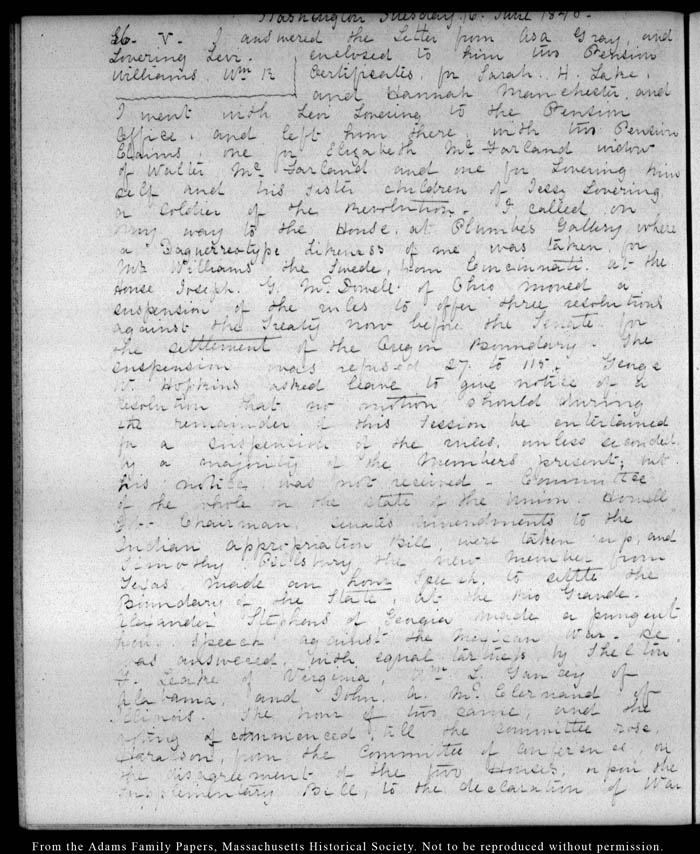 Washington Tuesday. 16. June 1846.
26. V. I answered the Letter from Asa Gray, and
Lovering Levi. enclosed to him two Pension
Williams. Wm R Certificates, for Sarah. H. Lake,
and Hannah Manchester, and
I went with Levi Lovering to the Pension
Office, and left him there, with two Pension
Claims, one for Elizabeth McFarland widow
of Walter McFarland and one for Lovering him
self and his sister children of Jesse Lovering
a Soldier of the Revolution. I called on
my way to the House, at Plumbe's Gallery, where
a Daguerreotype likeness of me was taken for
Mr Williams the Swede, from Cincinnati. At the
House Joseph. J. McDowell of Ohio moved a
suspension of the rules to offer three resolutions
against the Treaty now before the Senate for
the settlement of the Oregon Boundary. The
suspension was refused 27 to 115. George
W. Hopkins asked leave to give notice of a
resolution that no motion should during
the remainder of this Session be entertained
for a suspension of the rules, unless seconded
by a majority of the Members present; but
his notice was not received. Committee
of the whole on the state of the Union. Howell
Chairman. Senate's amendments to the
Indian appropriation Bill, were taken up, and
Timothy Pillsbury the new member from
Texas, made an hour speech, to settle the
Boundary of the State, at the Rio Grande.
Alexander Stephens of Georgia made a pungent
hour speech against the Mexican War. He
was answered, with equal by Shelton
F. Leake of Virginia, Wm L. Yancey of
Alabama, and John. A. McClernand of
Illinois. The hour of two came, and the
voting commenced, till the committee rose.
Haralson, from the Committee of conference, on
the disagreement of the two Houses, upon the
supplementary Bill, to the declaration of War
From the Adams Family Papers, Massachusetts Historical Society. Not to be reproduced without permission.